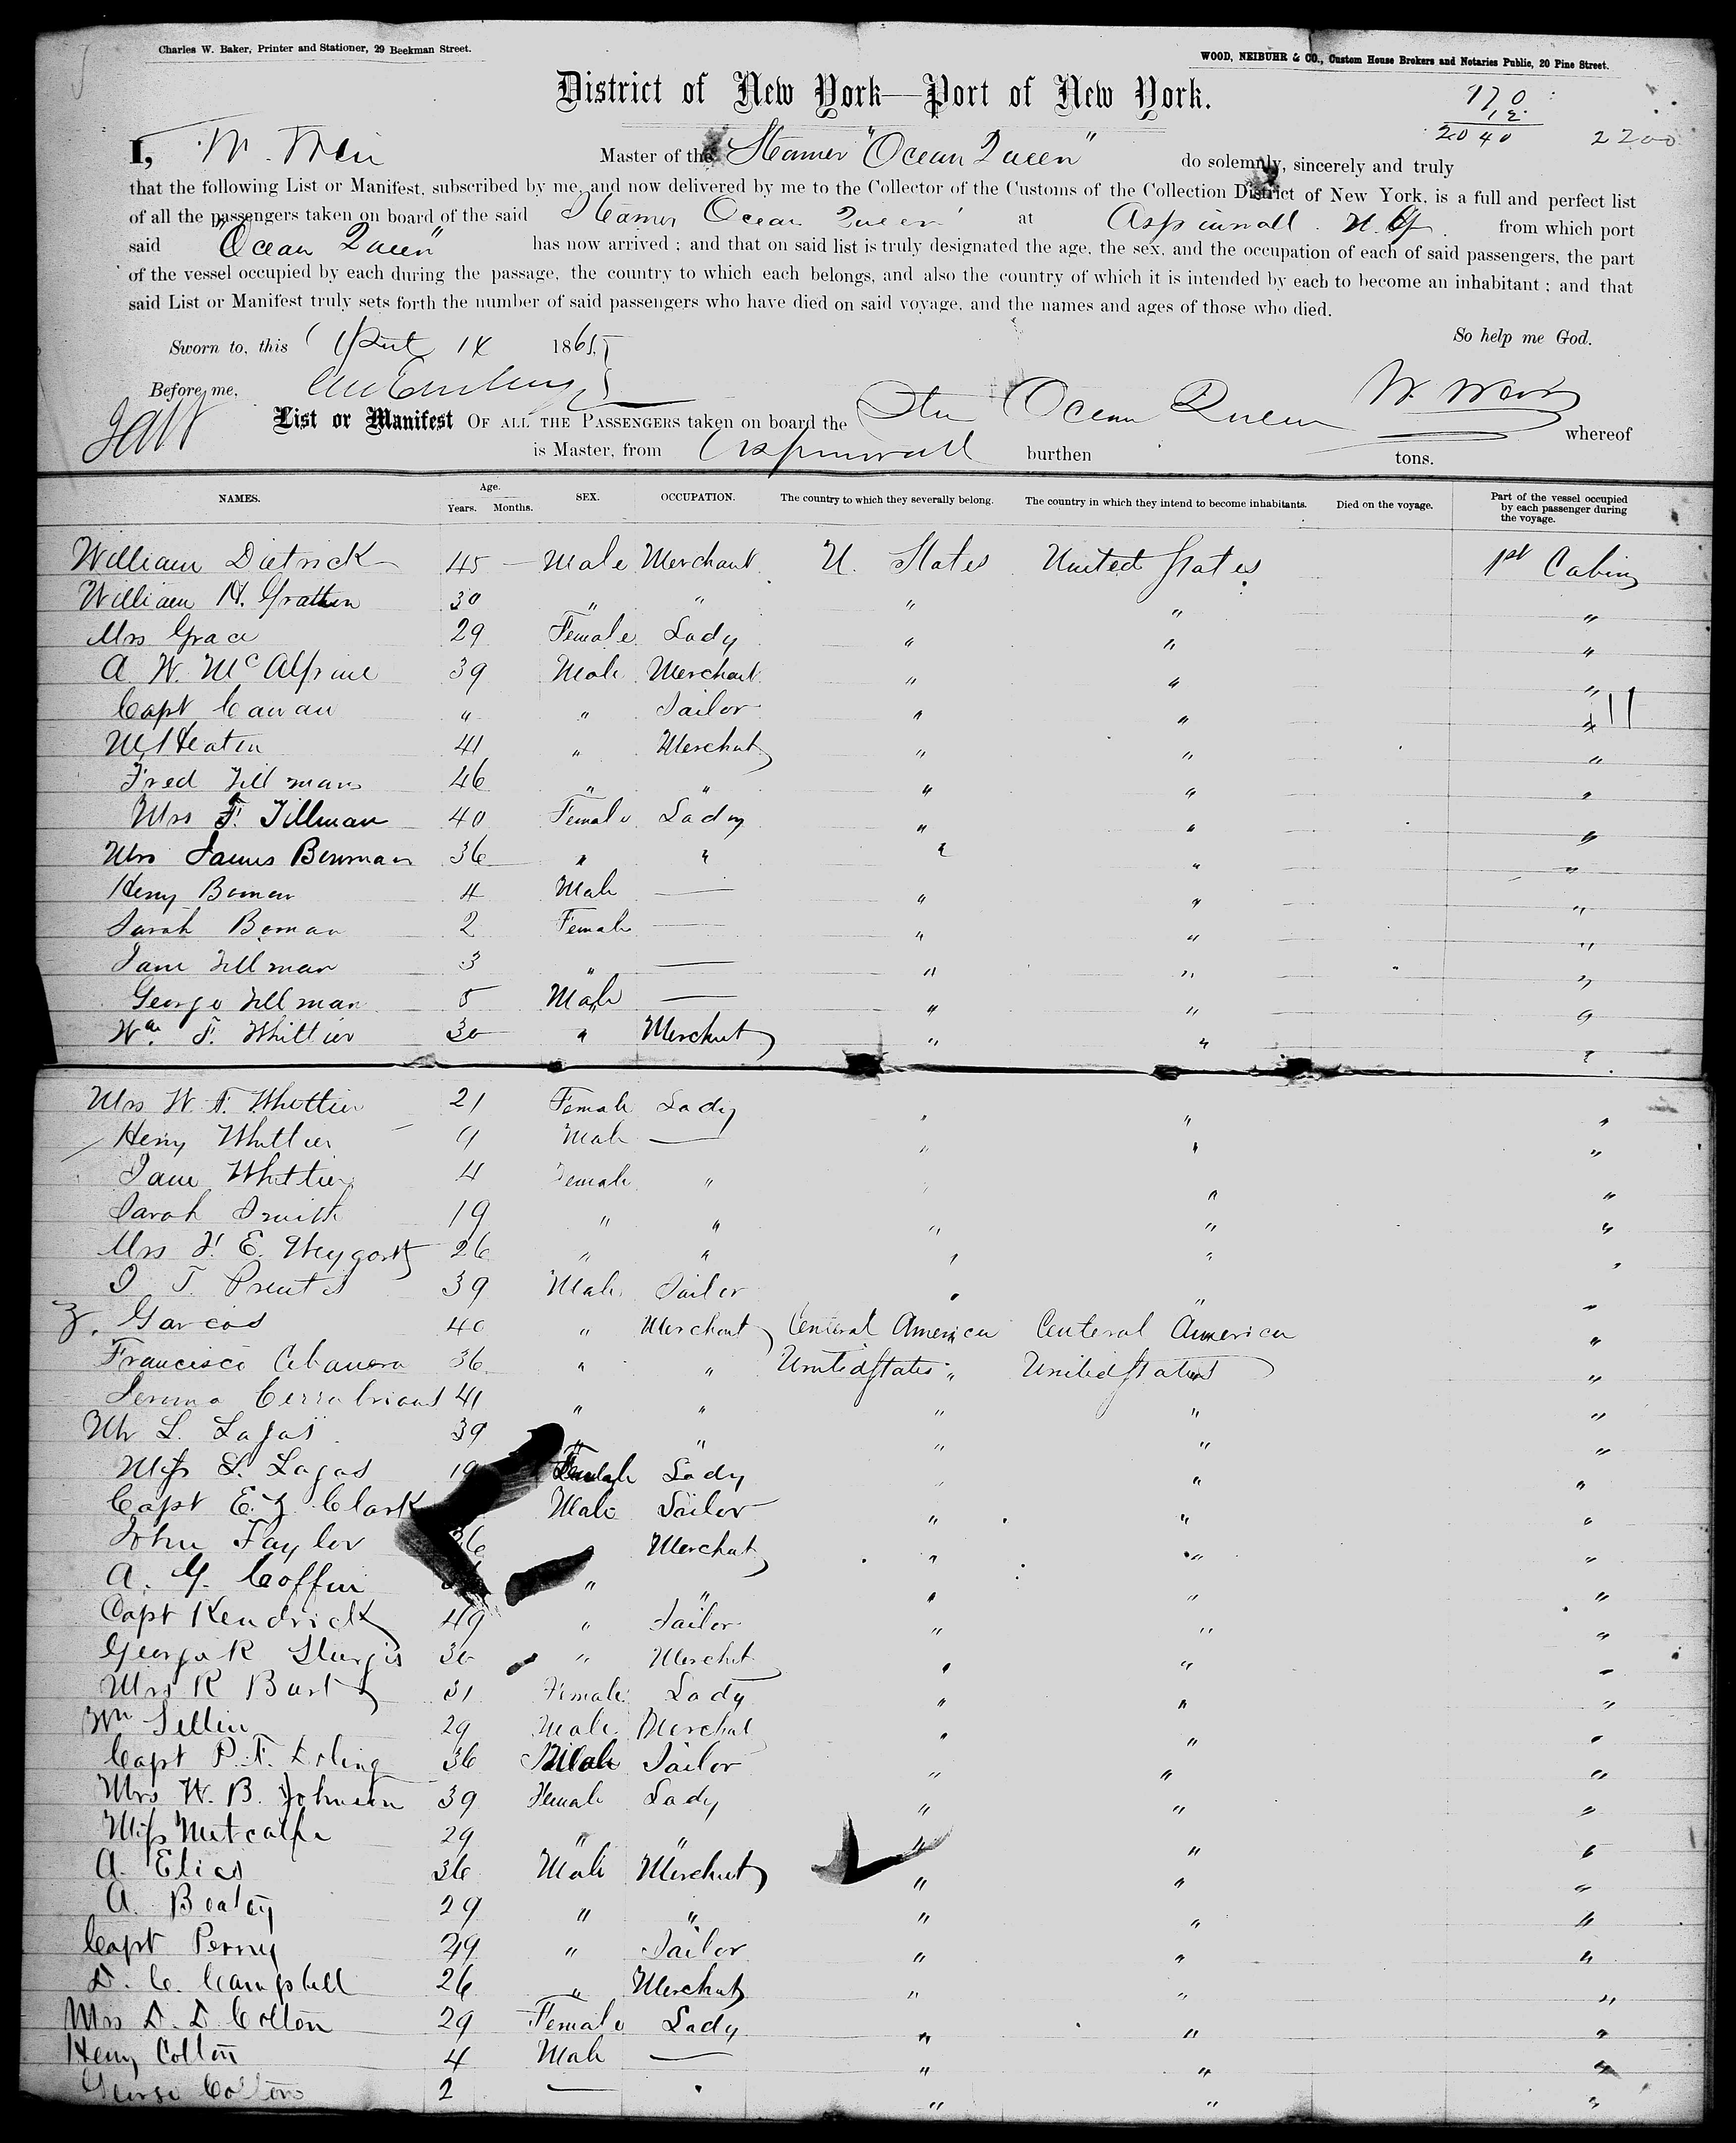 Charles W. Baker, Printer and Stationer, 29 Beekman Street.
WOOD, NEIBUHR & CO., Custom House Brokers and Notaries Public, 20 Pine Street.
District of New York—Port of New York.
170
12
2040 2200
I, W. Master of the Steamer "Ocean Queen" do solemnly, sincerely and truly
that the following List or Manifest, subscribed by me, and now delivered by me to the Collector of the Customs of the Collection District of New York, is a full and perfect list
of all the passengers taken on board of the said Steamer Ocean Queen at Aspinwall N. G. from which port
said "Ocean Queen" has now arrived ; and that on said list is truly designated the age, the sex, and the occupation of each of said passengers, the part
of the vessel occupied by each during the passage, the country to which each belongs, and also the country of which it is intended by each to become an inhabitant ; and that
said List or Manifest truly sets forth the number of said passengers who have died on said voyage, and the names and ages of those who died.
So help me God.
Sworn to, this April 14 1865
Before me,
List or Manifest OF ALL THE PASSENGERS taken on board the Str Ocean Queen whereof
is Master, from Aspinwall burthen tons.
NAMES. Age. Years. Months. SEX. OCCUPATION. The country to which they severally belong. The country in which they intend to become inhabitants. Died on the voyage. Part of the vessel occupied by each passenger during the voyage.
William Dietrick 45 — Male Merchant U. States United States 1st Cabin
William H. Gratten 30 " " " " "
Mrs Grace 29 Female Lady " " "
A. W. McAlpine 39 Male Merchant " " "
Capt Cavan " " Sailor " " " 11
M Heaton 41 " Merchant " " "
Fred Tillman 46 " " " " "
Mrs F. Tillman 40 Female Lady " " "
Mrs James Bowman 36 " " " " "
Henry Boman 4 Male — " " "
Sarah Boman 2 Female — " " "
Jane Tillman 3 " — " " "
George Tillman 5 Male — " " "
Wm. F. Whittier 30 " Merchant " " "
Mrs W. F. Whittier 21 Female Lady " " "
Henry Whittier 9 Male — " " "
Jane Whittier 4 Female " " " "
Sarah Smith 19 " " " " "
Mrs F. E. Weygort 26 " " " " "
T. Prentis 39 Male Sailor " " "
Z. Garcias 40 " Merchant Central America Centeral America "
Francisco 36 " " United States " United States "
41 " " " " "
Mr L. Lagas 39 " " " " "
Miss L. Lagas 19 Female Lady " " "
Capt E. Z. Clark Male Sailor " " "
John Taylor 36 Merchant " " "
A. G. Coffin " " " " "
Capt Kendrick 49 " Sailor " " "
George R Sturgis 30 " Merchant " " "
Mrs R Burt 31 Female Lady " " "
Wm 29 Male Merchant " " "
Capt P. F. 36 Male Sailor " " "
Mrs W. B. Johnson 39 Female Lady " " "
Miss Metcalfe 29 " " " " "
A. Elias 36 Male Merchant " " "
A. Bealey 29 " " " " "
Capt Perry 29 " Sailor " " "
D. C. Campbell 26 " Merchant " " "
Mrs D. D. Colton 29 Female Lady " " "
Henry Colton 4 Male — " " "
George Colton 2 — " " " "